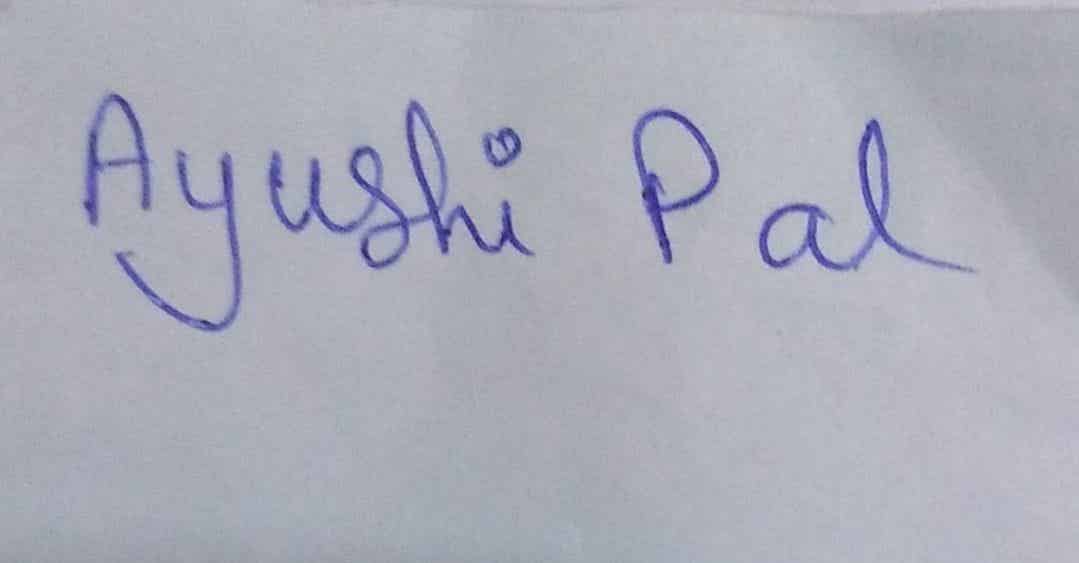 Ayushi Pal